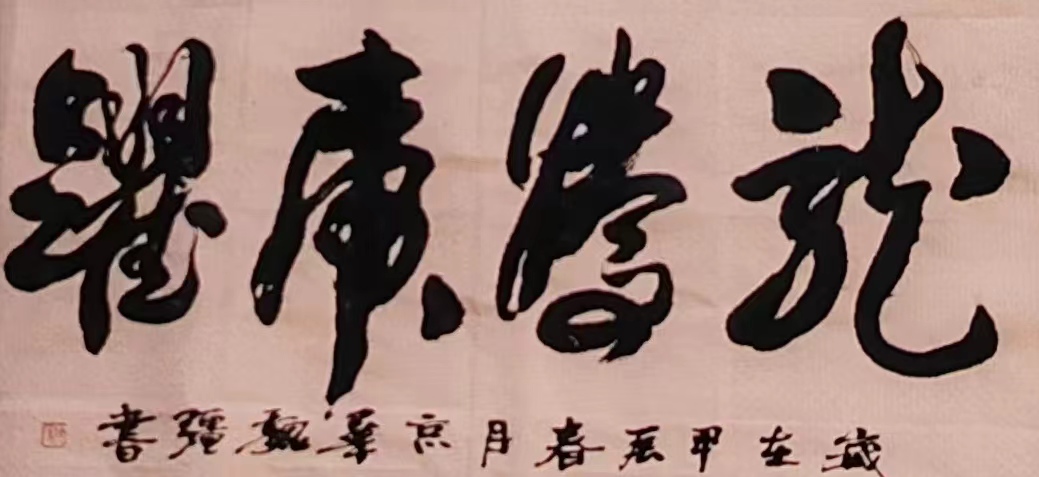 龍騰虎躍
歲在甲辰春月京華魏彊書